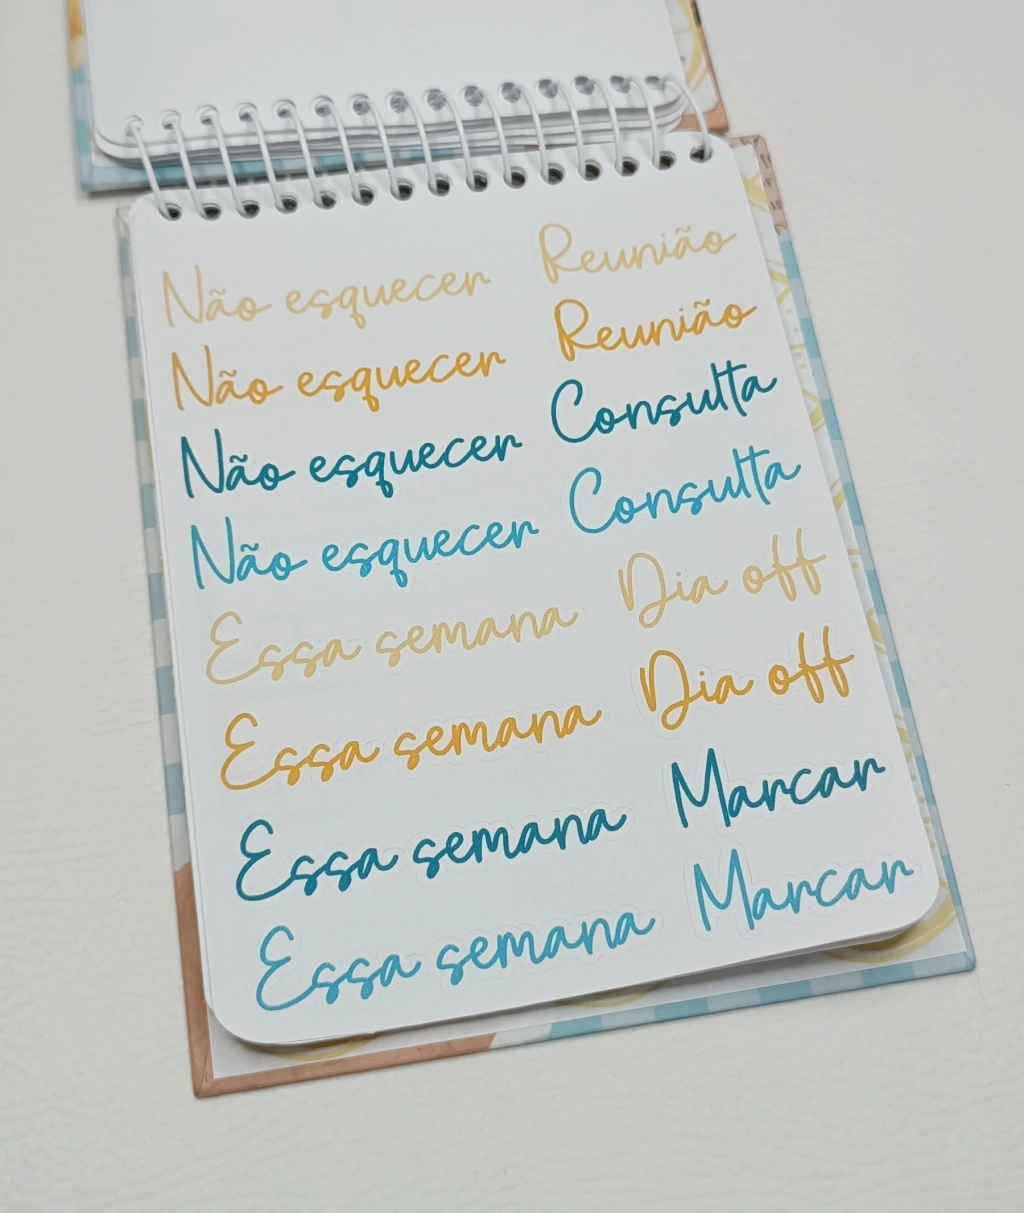 Não esquecer Reunião
Não esquecer Reunião
Não esquecer Consulta
Não esquecer Consulta
Essa semana Dia off
Essa semana Dia off
Essa semana Marcar
Essa semana Marcar